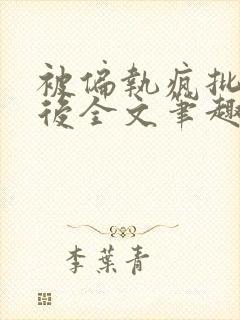 被偏執瘋批
後全文筆趣
李葉青